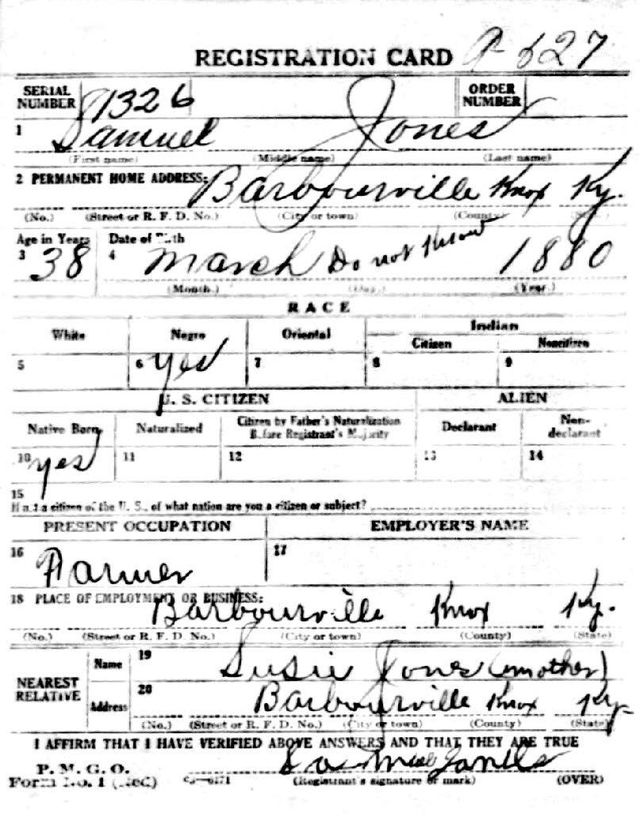 REGISTRATION CARD A-627
SERIAL NUMBER 1326 ORDER NUMBER
1 Samuel Jones
(First name) (Middle name) (Last name)
2 PERMANENT HOME ADDRESS: Barbourville Knox Ky.
(No.) (Street or R. F. D. No.) (City or town) (County)
Age in Years Date of Birth
3 38 4 March Do not Know 1880
(Month.) (Day.) (Year.)
RACE
White Negro Oriental Indian
Citizen Noncitizen
5 6 yes 7 8 9
U. S. CITIZEN ALIEN
Native Born Naturalized Citizen by Father's Naturalization Before Registrant's Majority Declarant Non-declarant
10 yes 11 12 13 14
15
If not a citizen of the U. S., of what nation are you a citizen or subject?
PRESENT OCCUPATION EMPLOYER'S NAME
16 Farmer 17
18 PLACE OF EMPLOYMENT OR BUSINESS: Barbourville Knox Ky.
(No.) (Street or R. F. D. No.) (City or town) (County) (State)
NEAREST RELATIVE Name 19 Susie Jones (mother)
Address 20 Barbourville Knox Ky
(No.) (Street or R. F. D. No.) (City or town) (County) (State)
I AFFIRM THAT I HAVE VERIFIED ABOVE ANSWERS AND THAT THEY ARE TRUE
P. M. G. O.
Form No. 1 (Red) (Registrant's signature or mark) (OVER)